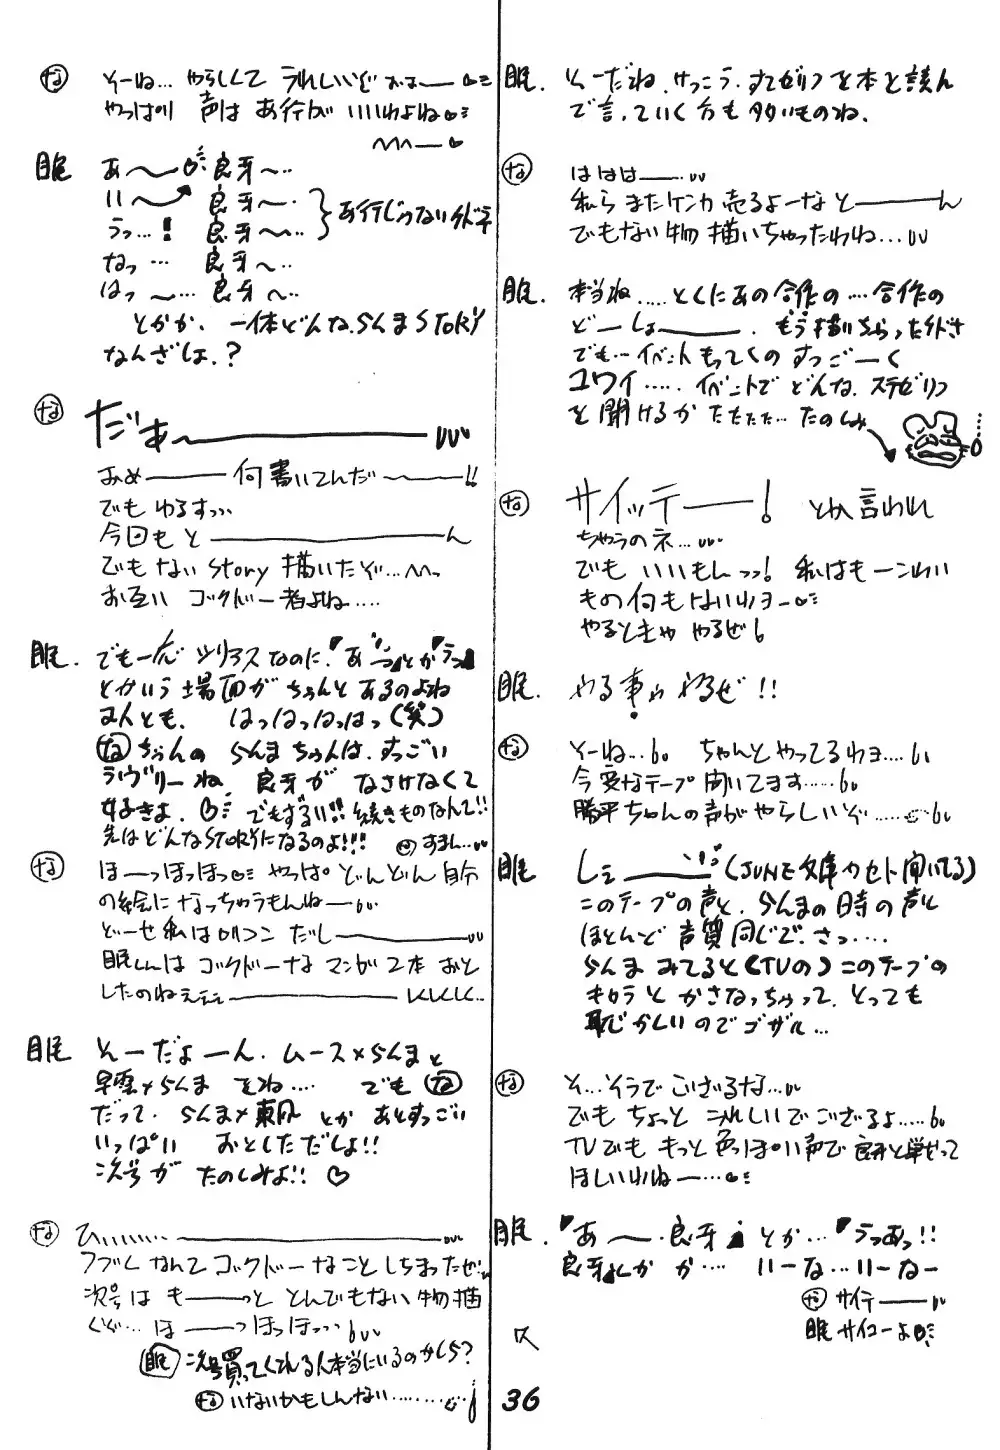 な そーね… やらしくて うれしいぞ おおー
やっぱり 声は あ行が いいわよね
眠 あ〜 良牙〜…
い〜 良牙〜…
うっ…! 良牙〜…
あ行じゃないけどネ
なっ … 良牙〜…
はっ 〜… 良牙〜…
とかか、一体どんならんまSTORY
なんざしょ?
な だぁ〜
あめー 何書いてんだ〜!!
でも ゆるすっ…
今回も と――ん
でもない Story 描いたぞ…
お互い ゴックドー者よね…
眠. でもーんもシリアスなのに"あっ"とか"うっ"
とかいう場面が ちゃんと あるのよね
2人とも、はっはっはっはっ(笑)
なちゃんの らんまちゃんは、すっごい
ラヴリーね 良牙が なさけなくて
好きよ。でもずるい!!続きものなんて!!
先はどんなSTORYになるのよ!!! すまん…
な ほーっほっほっ やっぱ どんどん 自分
の絵になっちゃうもんねー
どーせ私はロリコン だしー
眠しんは ゴックドーな マンガ 2本 おと
したのねぇぇぇ
眠 そーだよーん. ムース×らんまと
早雲×らんま をね… でも な
だって、らんま×東風 とか あとすっごい
いっぱい おとしただしょ!!
次号が たのしみよ!!
な ひぃぃぃぃ…
なんて ゴックドーなこと しちまったぜ!
次号は もーっと とんでもない 物描
くぞ… ほーっほっほっ…
眠 次号買ってくれる人本当にいるのかしら?
な いないかもしんない…
眠. そーだね. けっこう、すてゼリフを本と読ん
で言っていく方も多いものね.
な ははは――…
私ら またケンカ売るよーな と――ん
でもない物 描いちゃったわね…
眠. 本当ね… とくにあの合作の…合作の
どーしょ――. もう描いちゃったけどさ
でも…イベントもってくの すっごーく
コワイ…. イベントで どんな ステゼリフ
を聞けるか たたたた… たのしみ
な サイッテー! とか言われ
ちゃうのネ…
でも いいもんっっ! 私はもーこわい
もの何もないわヨー
やるときゃ やるぜ
眠. やる事ゎ やるぜ!!
な そーね… ちゃんとやってるわョ…
今変なテープ聞いてます…
勝平ちゃんの声がやらしいぞ…
眠 しーー(JUNE文庫カセット聞いてる)
このテープの声と、らんまの時の声と
ほとんど 声質同じで、さっ…
らんま みてると(TVの)このテープの
キャラと かさなっちゃって、とっても
恥かしいのでゴザル…
な そ…そうで ござるな…
でも ちょっと うれしいでござるよ…
TVでも もっと 色っぽい声で 良牙と戦って
ほしいわねー…
眠. "あ〜、良牙" とか… "うっあっ!!
良牙よしか か… いーな…いーなー
な サイテー
眠 サイコーよ
36